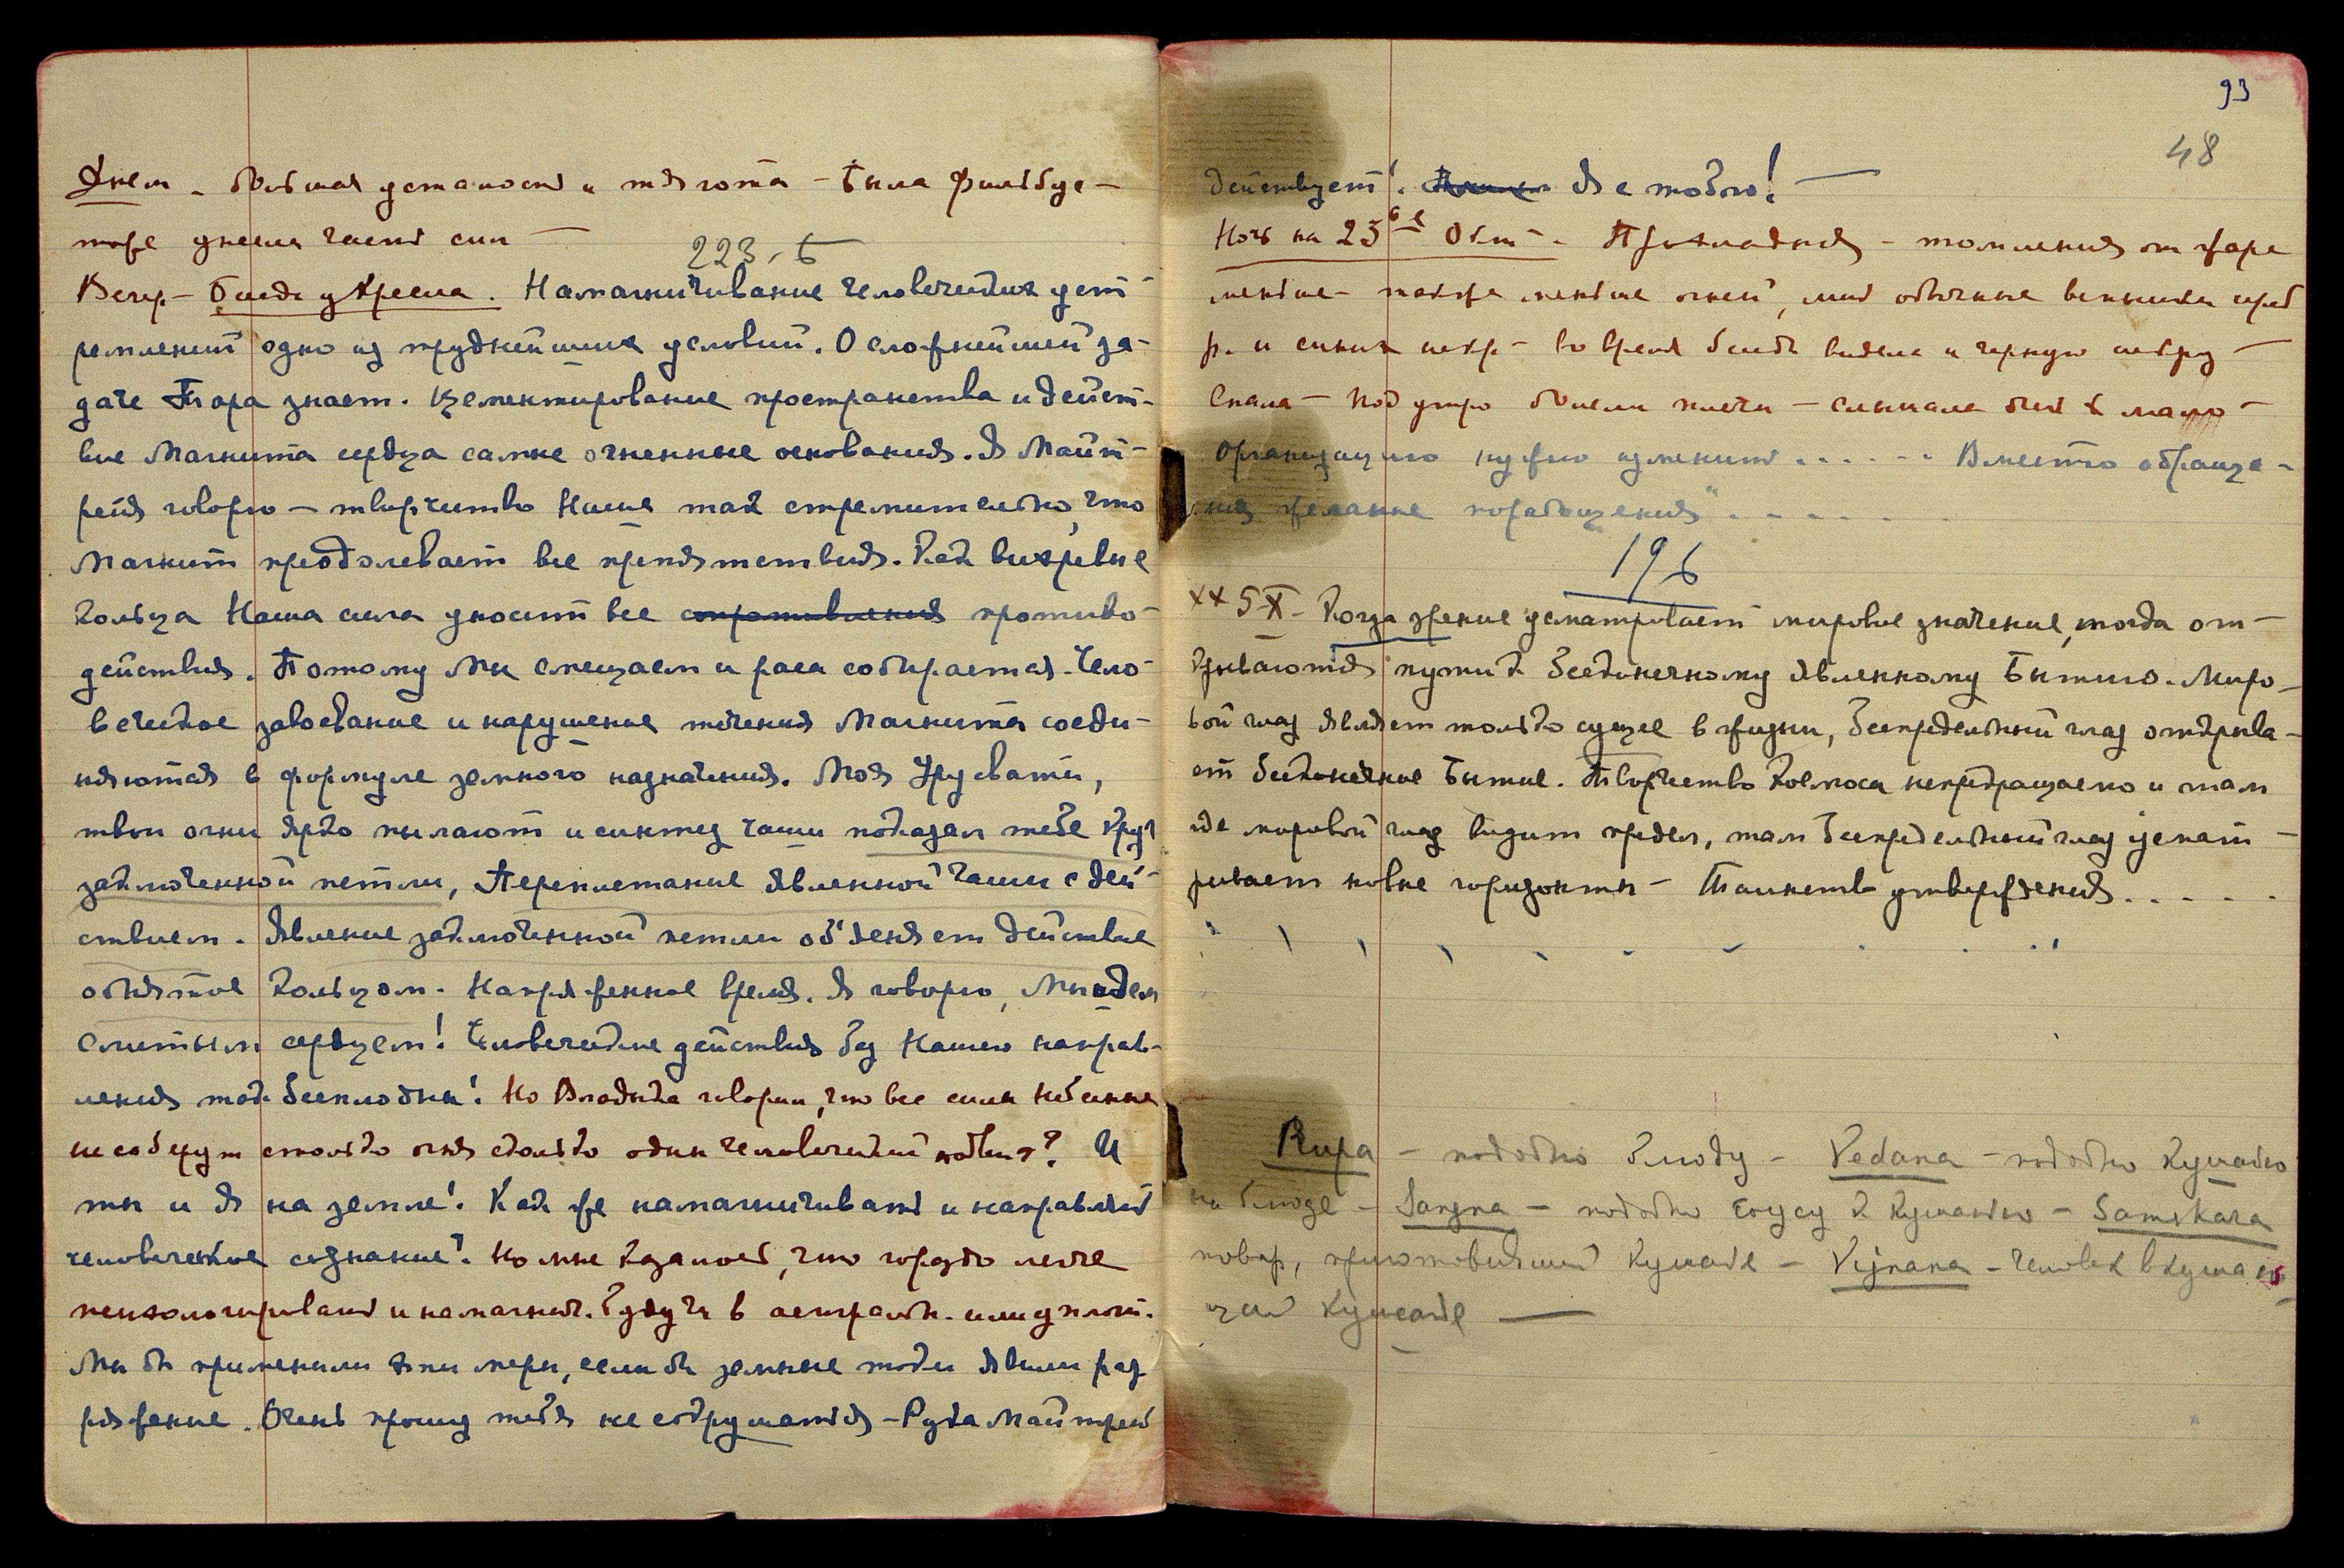 Днем – большая усталость и тягота – Была Фильбуе-
тоже унесла часть сил —
223, Б
Вечер – Беседа у Кресла. Намагничивание человеческих уст-
ремлений одно из труднейших условий. О сложнейшей за-
даче Тара знает. Цементирование пространства и дейст-
вие Магнита сердца самые огненные основания. Я Майт-
рейя говорю – творчество Наше так стремительно, что
Магнит преодолевает все препятствия. Как вихревые
кольца Наша сила уносит все сопротивления противо-
действия. Потому Мы смещаем и раса собирается. Чело-
веческое завоевание и нарушение течения Магнита соеди-
няются в формуле земного назначения. Моя Урусвати,
твои огни ярко пылают и синтез чаши показал тебе круг
заключенной петли, Переплетание явленной Чаши с дей-
ствием. Явление заключенной петли объясняет действие
объятое Кольцом. Напряженное время. Я говорю, Мы идем
слитым сердцем! Человеческие действия без Нашего направ-
ления так бесплодны! Но Владыка говорил, что все силы Небесные
не соберут столько огня сколько один человеческий подвиг? И
ты и Я на земле! Как же намагничивать и направлять
человеческое сознание? Но мне казалось, что гораздо легче
психологировать и намагнич. будучи в астральн. или уплот.
Мы бы применили эти меры, если бы земные токи явили раз
ряжение. Очень прошу тебя не сокрушаться – Рука Майтрейи
93
48
действует! Я с тобою! —
Ночь на 23ье Окт – Прохладная – томления от жара
меньше – также меньше огней, лишь обычные вспышки сереб
р. и синих искр – во время беседы видела и черную искру –
Спала – Под утро болели плечи – слышала был к мало –
Организацию нужно изменить . . . . . . Вместо обраще-
ния желание порабощения" . . . . . .
196
хх 5-X – Когда зрение усматривает мировое значение, тогда от-
крываются пути к Бесконечному явленному Бытию. Миро-
вой глаз являет только сущее в жизни, Беспредельный глаз открыва-
ет Бесконечное Бытие. Творчество Космоса непрекращаемо и там
где мировой глаз видит предел, там Беспредельный глаз усмат-
ривает новые горизонты – Таинство утверждения . . . . . .
Rupa – подобно блюду – Vedana – подобно кушанью
на блюде – Sangna – подобно соусу к кушанью – Samskara
повар, приготовивший кушанье – Vijnana – человек вкушаю
щий кушанье —